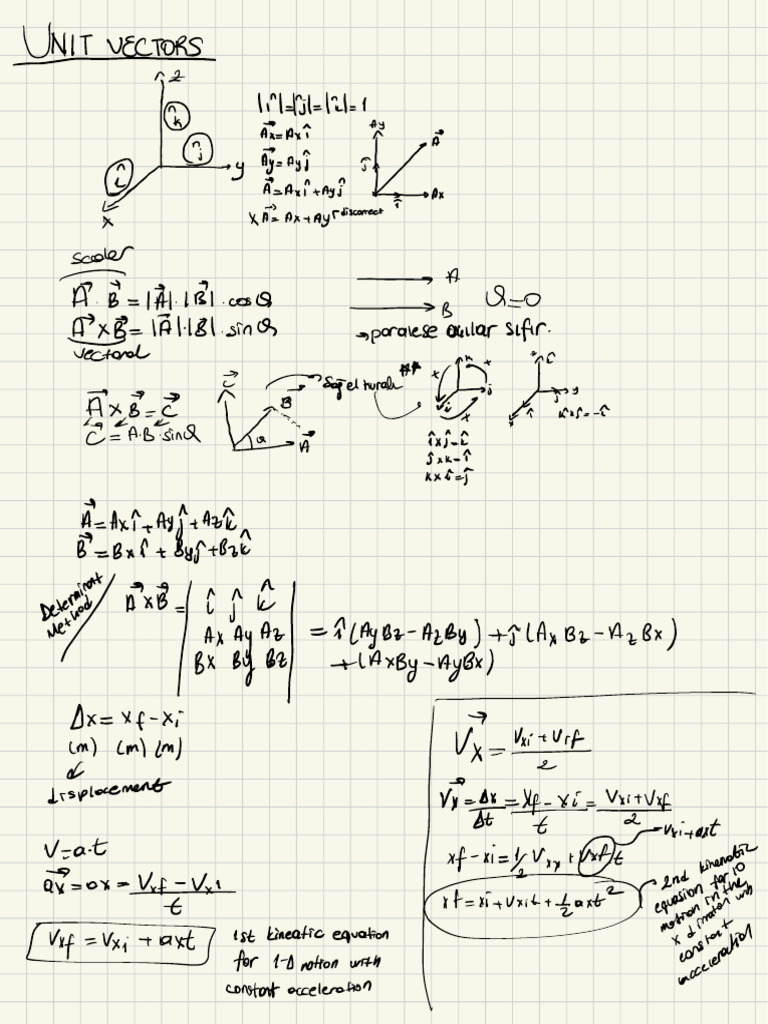 UNIT VECTORS
z
k̂
ĵ
y
î
x
|î|=|ĵ|=|k̂|=1
A⃗x=Axî
A⃗y=Ayĵ
A⃗=Axî+Ayĵ
x A⃗=Ax+Ay
Ay
A⃗
ĵ
Ax
î
scaler
A⃗·B⃗=|A⃗|·|B⃗|·cosθ
A⃗×B⃗=|A⃗|·|B⃗|·sinθ
vectoral
A
B
θ=0
A⃗×B⃗=C⃗
C⃗=A·B·sinθ
C⃗
B⃗
θ
A⃗
Sağ el kuralı **
k
j
i
î×ĵ=k̂
ĵ×k=î
k×î=ĵ
y
k×j=-i
A⃗=Axî+Ayĵ+Azk̂
B⃗=Bxî+Byĵ+Bzk̂
Determinant Method
A⃗×B⃗=
î ĵ k̂
Ax Ay Az
Bx By Bz
=î(AyBz-AzBy)+ĵ(AxBz-AzBx)
+(AxBy-AyBx)
Δx=xf-xi
(m) (m) (m)
displacement
V=a·t
a⃗x=ax=(Vxf-Vxi)/t
Vxf=Vxi+axt
1st kineatic equation
for 1-D motion with
constant acceleration
V⃗x=(Vxi+Vif)/2
V⃗x=Δx/Δt=(xf-xi)/t=(Vxi+Vxf)/2
Vxi+axt
xf-xi=1/2 Vxx+Vxf)t
xf=xi+Vxit+1/2axt²
2nd kinematic
equasion for 1D
motion in the
x diraton with
constant
acceleration